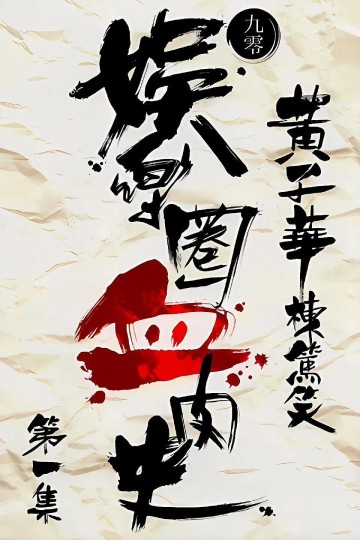 黃子華棟篤笑
九零
娛樂圈血肉史
第一集